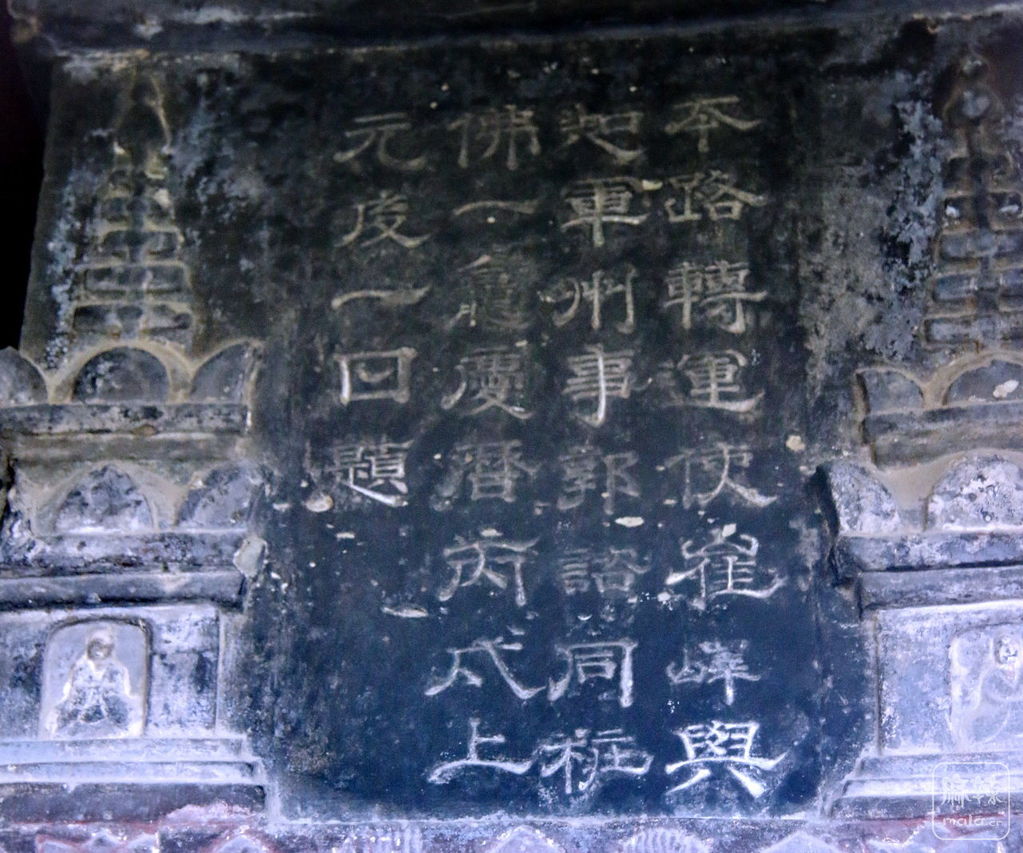 夲路轉運使崔嶧與
知軍州事郭諮同粧
佛一龕慶曆丙戌上
元後一日題
麻辣
mala.cn